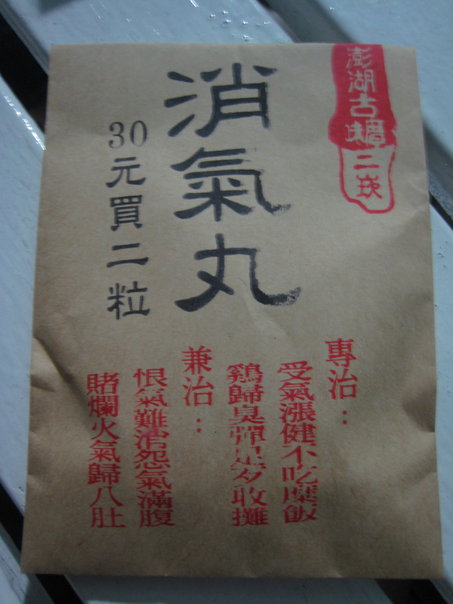 澎湖古
二崁
消氣丸
30元買二粒
專治：
受氣漲健不吃糜飯
鷄歸臭彈是歹收攤
兼治：
恨氣難消怨氣滿腹
賭爛火氣歸八肚